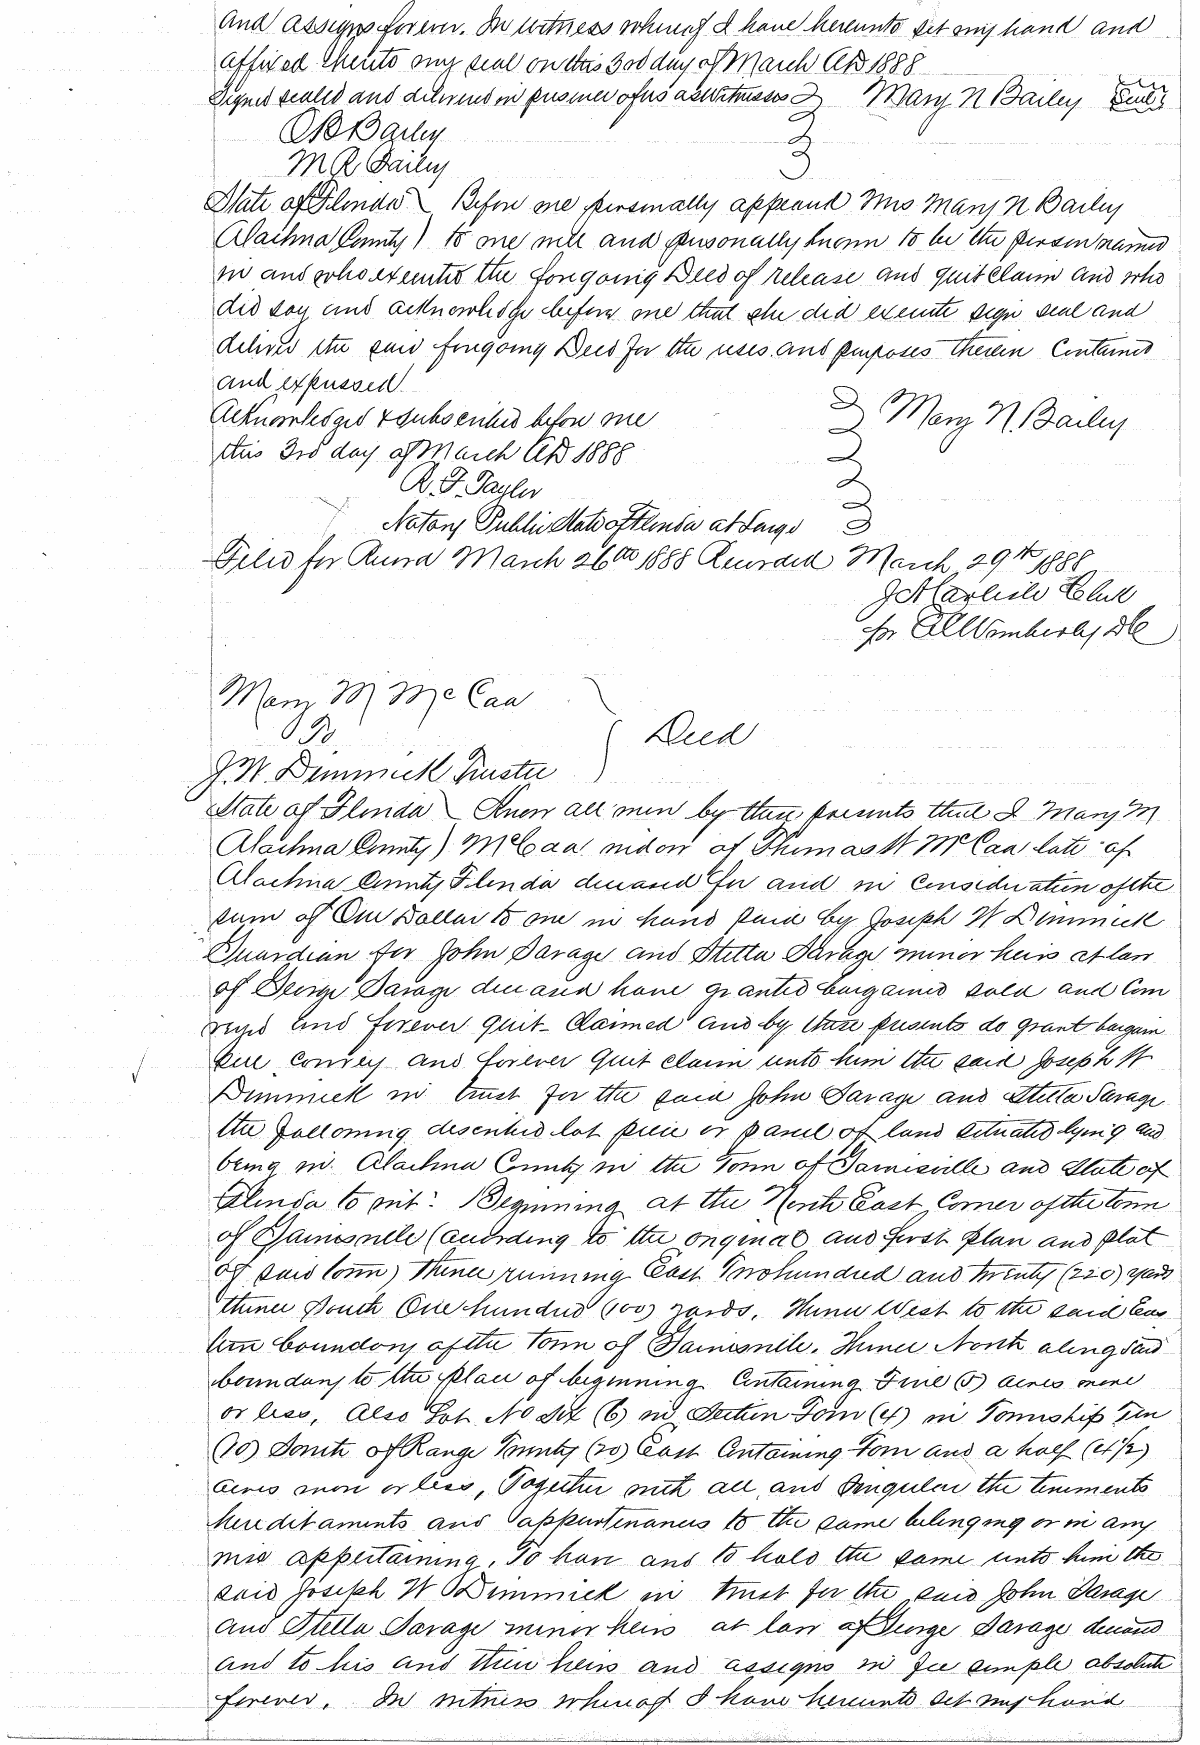 and assigns forever. In witness whereof I have hereunto set my hand and
affixed thereto my seal on this 3rd day of March AD 1888
Signed sealed and delivered in presence of us as witnesses Mary N Bailey Seal
Bailey
M R Bailey
State of Florida Before me personally appeared Mrs Mary N Bailey
Alachua County) to me well and personally known to be the person named
in and who executed the foregoing Deed of release and quit claim and who
did say and acknowledge before me that she did execute sign seal and
deliver the said foregoing Deed for the uses and purposes therein contained
and expressed.
Acknowledged & subscribed before me Mary N. Bailey
this 3rd day of March AD 1888
R. F. Taylor
Notary Public State of Florida at Large
Filed for Record March 26th 1888 Recorded March 29th 1888
J A Carlisle Clerk
per Wimberly DC
Mary M McCaa
To Deed
J. W. Dimmick Trustee
State of Florida Know all men by these presents that I Mary M
Alachua County) McCaa widow of Thomas W McCaa late of
Alachua County Florida deceased for and in consideration of the
sum of One Dollar to me in hand paid by Joseph W Dimmick
Guardian for John Savage and Stella Savage minor heirs at law
of George Savage deceased have granted bargained sold and con
veyed and forever quit-claimed and by these presents do grant bargain
sell convey and forever quit claim unto him the said Joseph W
Dimmick in trust for the said John Savage and Stella Savage
the following described lot piece or parcel of land situated lying and
being in Alachua County in the Town of Gainesville and State of
Florida to wit: Beginning at the North East Corner of the town
of Gainesville (according to the original and first plan and plat
of said town) thence running East Two hundred and twenty (220) yards
thence South One hundred (100) yards, thence West to the said Eas
tern boundary of the town of Gainesville. Thence North along said
boundary to the place of beginning. Containing Five (5) acres more
or less, Also Lot No Six (6) in Section Four (4) in Township Ten
(10) South of Range Twenty (20) East Containing Four and a half (4 1/2)
acres more or less, Together with all and singular the tenements
hereditaments and appurtenances to the same belonging or in any
wise appertaining. To have and to hold the same unto him the
said Joseph W Dimmick in trust for the said John Savage
and Stella Savage minor heirs at law of George Savage deceased
and to his and their heirs and assigns in fee simple absolute
forever. In witness whereof I have hereunto set my hand